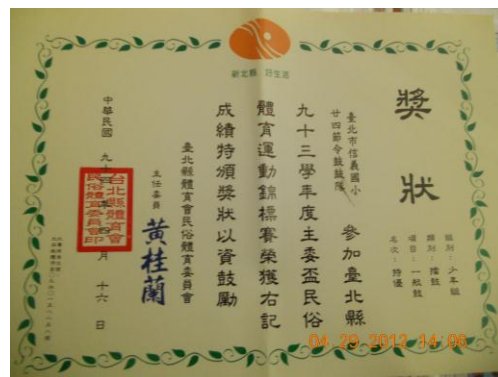 新北縣 好生活
獎狀
組別：少年組
類別：擂鼓
項目：一般鼓
名次：特優
臺北市信義國小
廿四節令鼓鼓隊
參加臺北縣
九十三學年度主委盃民俗
體育運動錦標賽榮獲右記
成績特頒獎狀以資鼓勵
臺北縣體育會民俗體育委員會
主任委員 黃桂蘭
中華民國 九十四年 四月 十六 日
台北縣體育會
民俗體育委員會印
04 29 2012 14:06